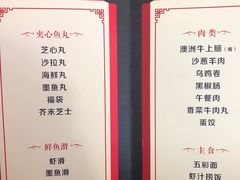 夹心鱼丸
芝心丸
沙拉丸
海鲜丸
墨鱼丸
福袋
芥末芝士
鲜鱼滑
虾滑
墨鱼滑
肉类
澳洲牛上脑（瘦）
沙葱羊肉
乌鸡卷
黑椒肠
午餐肉
香菜牛肉丸
蛋饺
主食
五彩面
虾汁捞饭